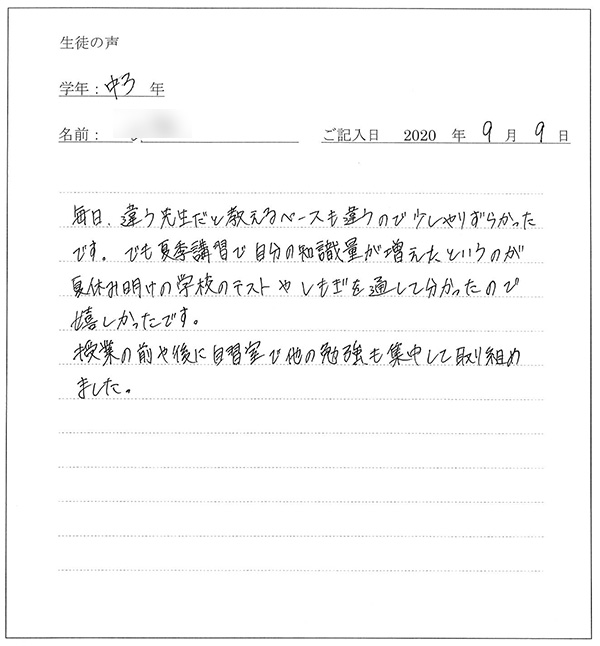 生徒の声
学年：中3 年
名前：
ご記入日 2020 年 9 月 9 日
毎日、違う先生だと教えるペースも違うので少しやりずらかった
です。でも夏季講習で自分の知識量が増えたというのが
夏休み明けの学校のテストやしもぎを通して分かったので
嬉しかったです。
授業の前や後に自習室で他の勉強も集中して取り組め
ました。